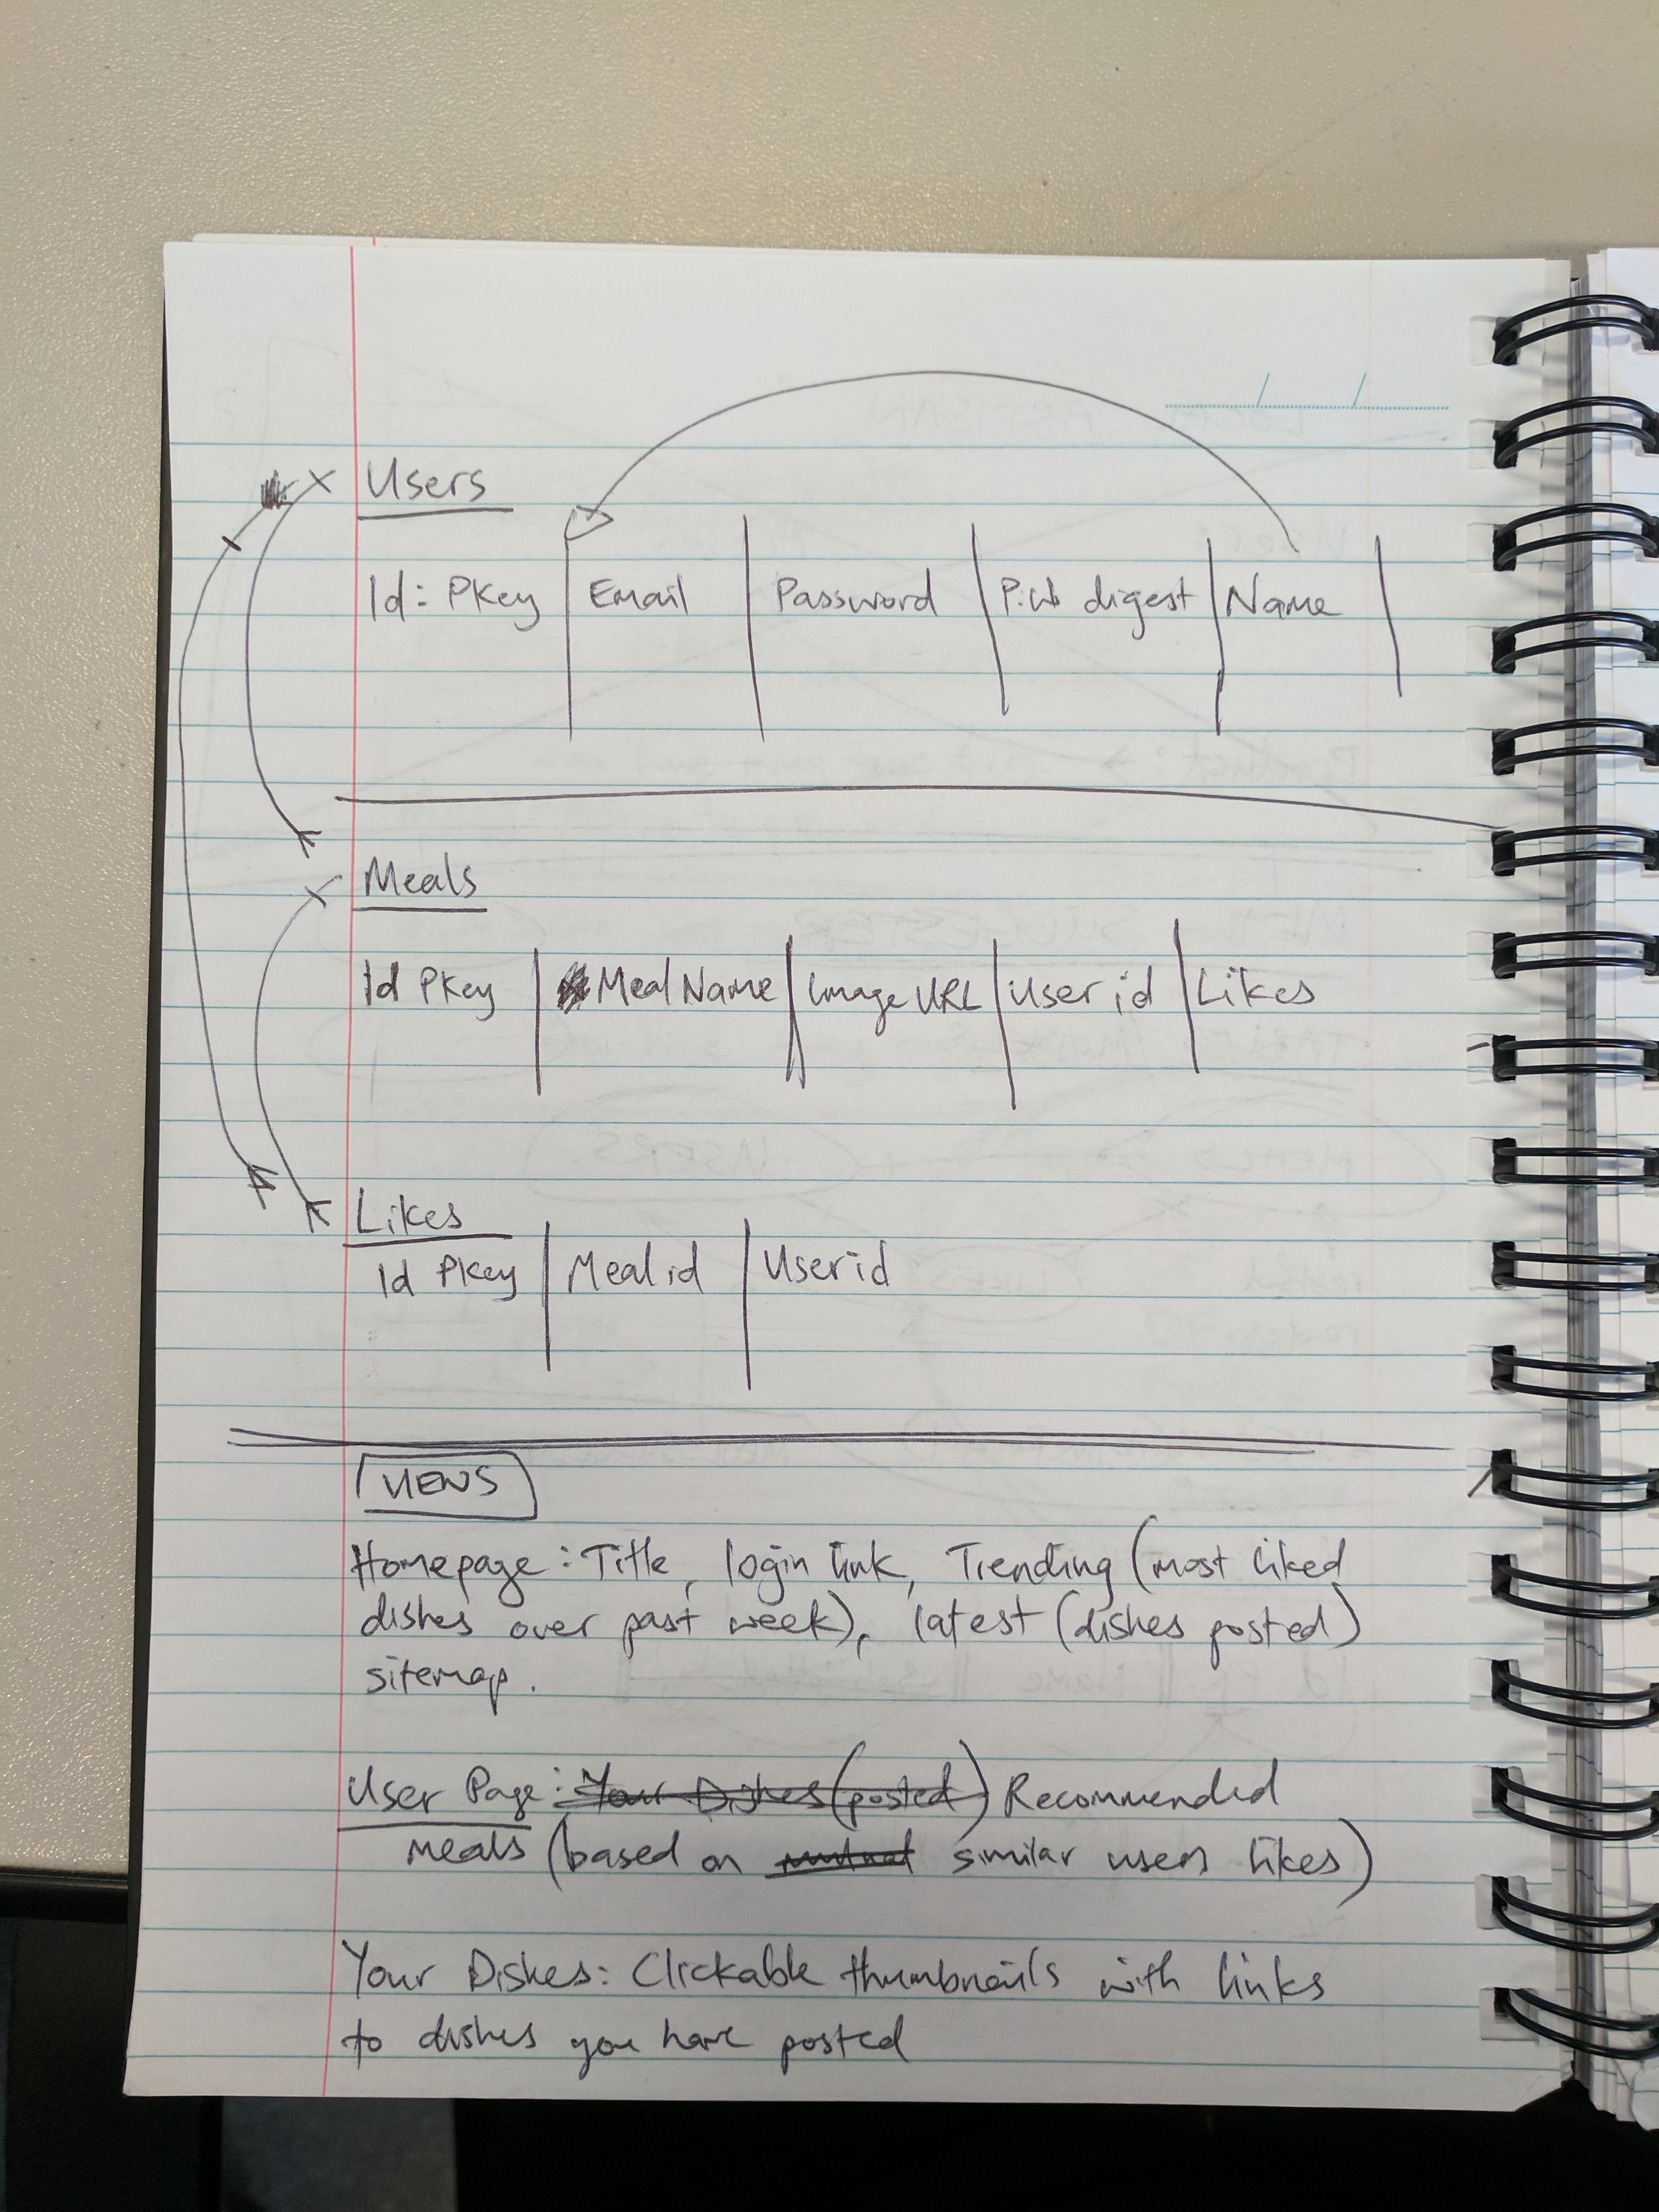 Users
Id: PKey | Email | Password | P.W digest | Name |
Meals
Id PKey | Meal Name | Image URL | User id | Likes
Likes
Id PKey | Meal id | User id
VIEWS
Homepage: Title, login link, Trending (most liked
dishes over past week), latest (dishes posted)
sitemap.
User Page: Your Dishes (posted) Recommended
meals (based on mutual similar users likes)
Your Dishes: Clickable thumbnails with links
to dishes you have posted